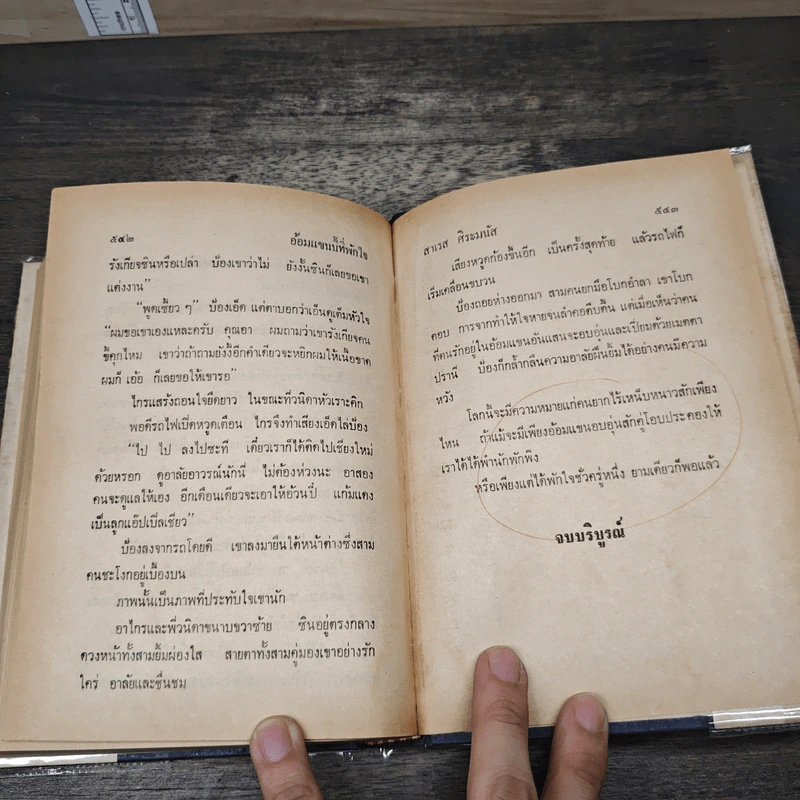 ๕๔๒
อ้อมแขนนี้ที่พักใจ
รังเกียจซินหรือเปล่า บ้องเขาว่าไม่ ยังงั้นซินก็เลยขอเขา
แต่งงาน”
“พูดเซี้ยว ๆ” บ้องเอ็ด แต่ตาบอกว่าเอ็นดูเต็มหัวใจ
“ผมขอเขาเองแหละครับ คุณอา ผมถามว่าเขารังเกียจคน
ขี้คุกไหม เขาว่าถ้าถามยังงี้อีกคำเดียวจะหยิกผมให้เนื้อขาด
ผมก็ เอ้อ ก็เลยขอให้เขารอ”
ไกรแสร้งถอนใจยืดยาว ในขณะที่วนิดาหัวเราะคิก
พอดีรถไฟเป่าหวูดเตือน ไกรจึงทำเสียงเอ็ดไล่บ้อง
“ไป ไป ลงไปซะที เดี๋ยวเราก็ได้ติดไปเชียงใหม่
ด้วยหรอก ดูอาลัยอาวรณ์นักนี่ ไม่ต้องห่วงนะ อาสอง
คนจะดูแลให้เอง อีกเดือนเดียวจะเอาให้อ้วนปี๋ แก้มแดง
เป็นลูกแอ๊ปเปิ้ลเชียว”
บ้องลงจากรถโดยดี เขาลงมายืนใต้หน้าต่างซึ่งสาม
คนชะโงกอยู่เบื้องบน
ภาพนั้นเป็นภาพที่ประทับใจเขานัก
อาไกรและพี่วนิดาขนาบขวาซ้าย ซินอยู่ตรงกลาง
ดวงหน้าทั้งสามยิ้มผ่องใส สายตาทั้งสามคู่มองเขาอย่างรัก
ใคร่ อาลัยและชื่นชม
๕๔๓
สาเรส ศิระมนัส
เสียงหวูดก้องขึ้นอีก เป็นครั้งสุดท้าย แล้วรถไฟก็
เริ่มเคลื่อนขบวน
บ้องถอยห่างออกมา สามคนยกมือโบกอำลา เขาโบก
ตอบ การจากทำให้ใจหายจนลำคอตีบตื้น แต่เมื่อเห็นว่าคน
ที่ตนรักอยู่ในอ้อมแขนอันแสนจะอบอุ่นและเปี่ยมด้วยเมตตา
ปรานี บ้องก็กล้ำกลืนความอาลัยฝืนยิ้มได้อย่างคนมีความ
หวัง
โลกนี้จะมีความหมายแก่คนยากไร้เหน็บหนาวสักเพียง
ไหน ถ้าแม้จะมีเพียงอ้อมแขนอบอุ่นสักคู่โอบประคองให้
เราได้ได้พำนักพักพิง
หรือเพียงแต่ได้พักใจชั่วครู่หนึ่ง ยามเดียวก็พอแล้ว
จบบริบูรณ์